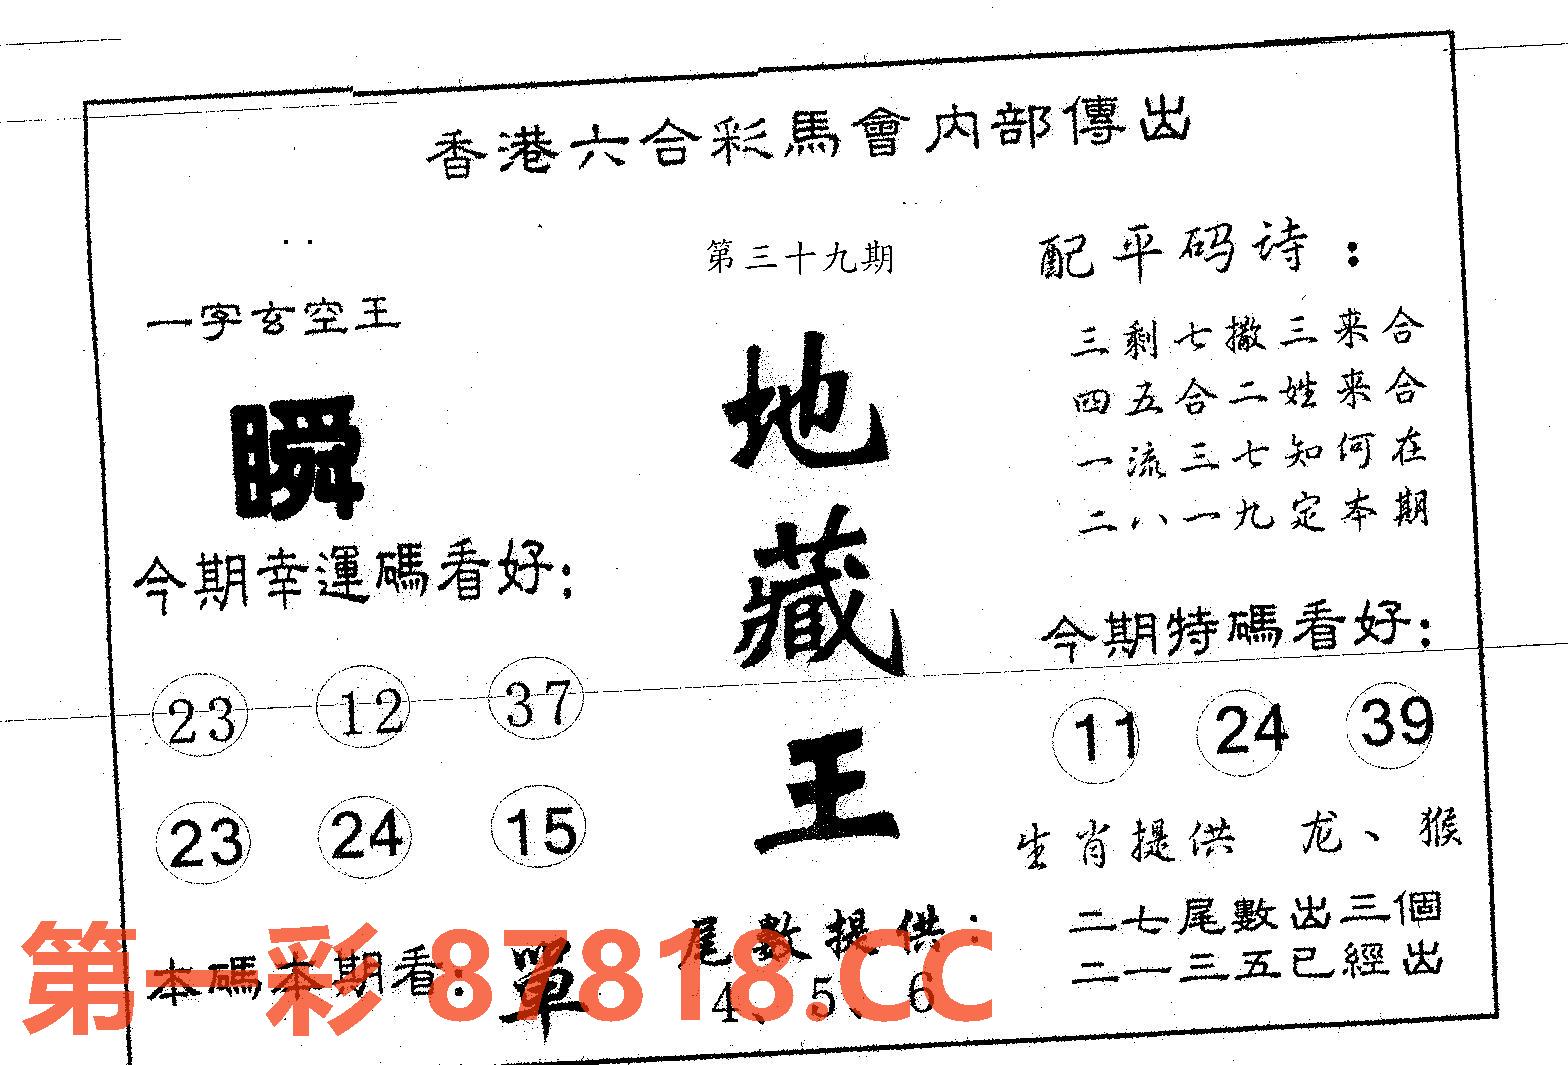 香港六合彩馬會內部傳出
第三十九期
一字玄空王
瞬
今期幸運碼看好:
23 12 37
23 24 15
本碼本期看: 單
地
藏
王
尾數提供:
4、5、6
配平码诗:
三剩七撒三来合
四五合二姓来合
一流三七知何在
二八一九定本期
今期特碼看好:
11 24 39
生肖提供 龙、猴
二七尾數出三個
二一三五已經出
第一彩 87818.CC